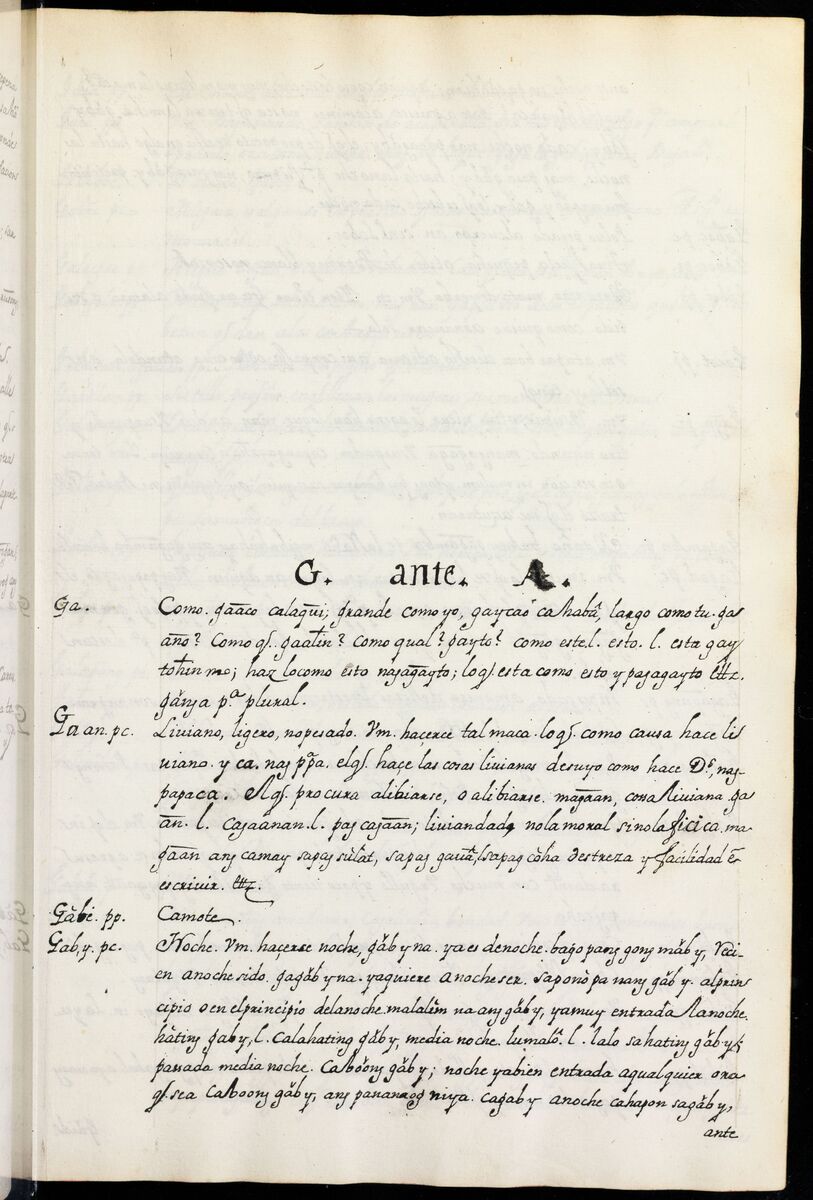 G. ante. A.
Ga. Como. gaaco calagui; grande como yo, gaycao cahabâ, largo como tu. ga
año? Como qs. gaalin? como qual? gayto? como este. l. esto. l. esta gay
tohin mo; haz lo como esto nagagayto; loqs esta como esto y pagagayto ettz.
ganga pa. plural.
Gaan. pc. Liviano, ligero, no pesado. Vm. hacerce tal maca. loqs. como causa hace li
viano. y ca. nag ppa. elqs. haçe las cosas livianas desuyo como hace Ds. nag-
papaca. Aqs. procura alibiarse, o alibiarse. magaan, cossa liviana. ga
an. l. cagaanan. l. pag cagaan; liviandad, no la moral sino la ficica. ma
gaan ang camay sapag sulat, sapag gauâ, l, sapag coha destreza y facilidad ē
escrivir. ettz.
Gàbi. pp. Camote.
Gab,y. pc. Noche. Vm. haçerse noche, gäb y na. ya es de noche. bago pang gong mäb y, Reci-
en anochesido. gagäb y na. ya quiere anocheser. saponò pa nang gäb y. al prin
cipio o en el principio de la noche. malalim na ang gäb y, ya muy entrada la noche.
hàting gab y, l. calahating gäb y, media noche. lumalô. l. lalo sa hating gäb y;
passada media noche. Caboong gäb y; noche ya bien entrada a qualquier ora
qs. sea Caboong gäb y, ang pananaog niya. cagab y anoche cahapon sa gäb y,
ante